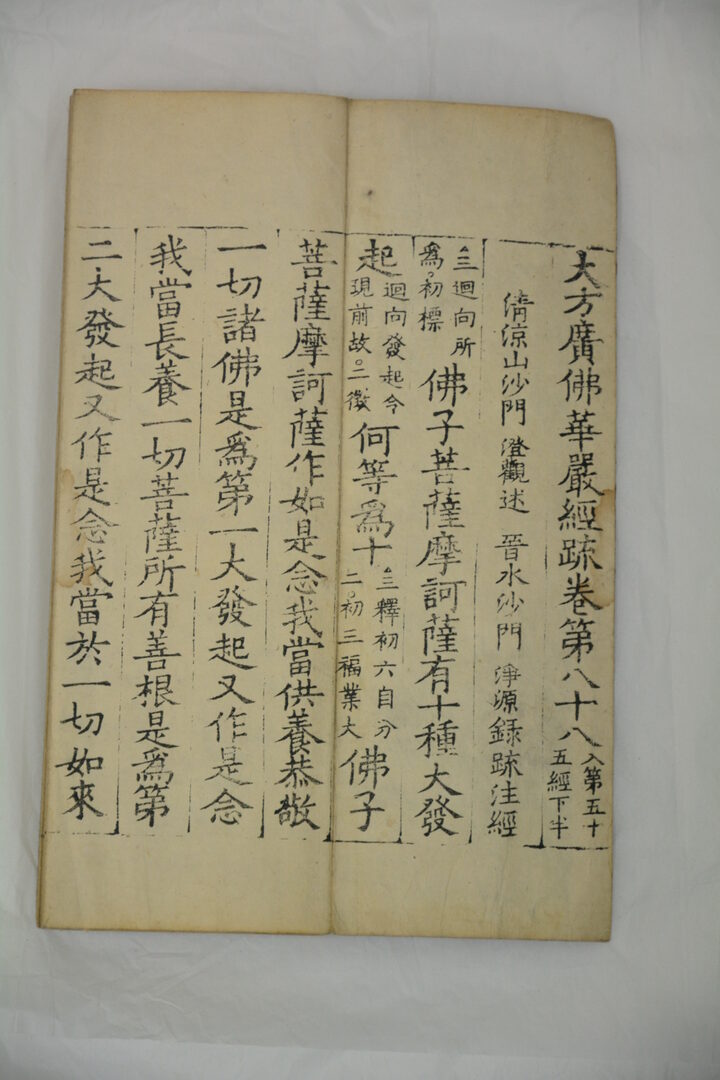 大方廣佛華嚴經䟽卷第八十八入第五十五經下半
清涼山沙門 澄觀述 晉水沙門 淨源録䟽注經
三迴向所爲初標佛子菩薩摩訶薩有十種大發
起迴向發起今現前故二徵何等爲十三釋初六自分二初三福業大佛子
菩薩摩訶薩作如是念我當供養恭敬
一切諸佛是爲第一大發起又作是念
我當長養一切菩薩所有善根是爲第
二大發起又作是念我當於一切如來